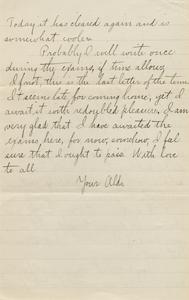 Today it has cleared again and is
somewhat cooler.
Probably I will write once
during the exams, if time allows,
If not, this is the last letter of the term.
It seems late for coming home, yet I
await it with redoubled pleasure. I am
very glad that I have awaited the
exams, here, for now, I feel
sure that I ought to pass. With love
to all
Your